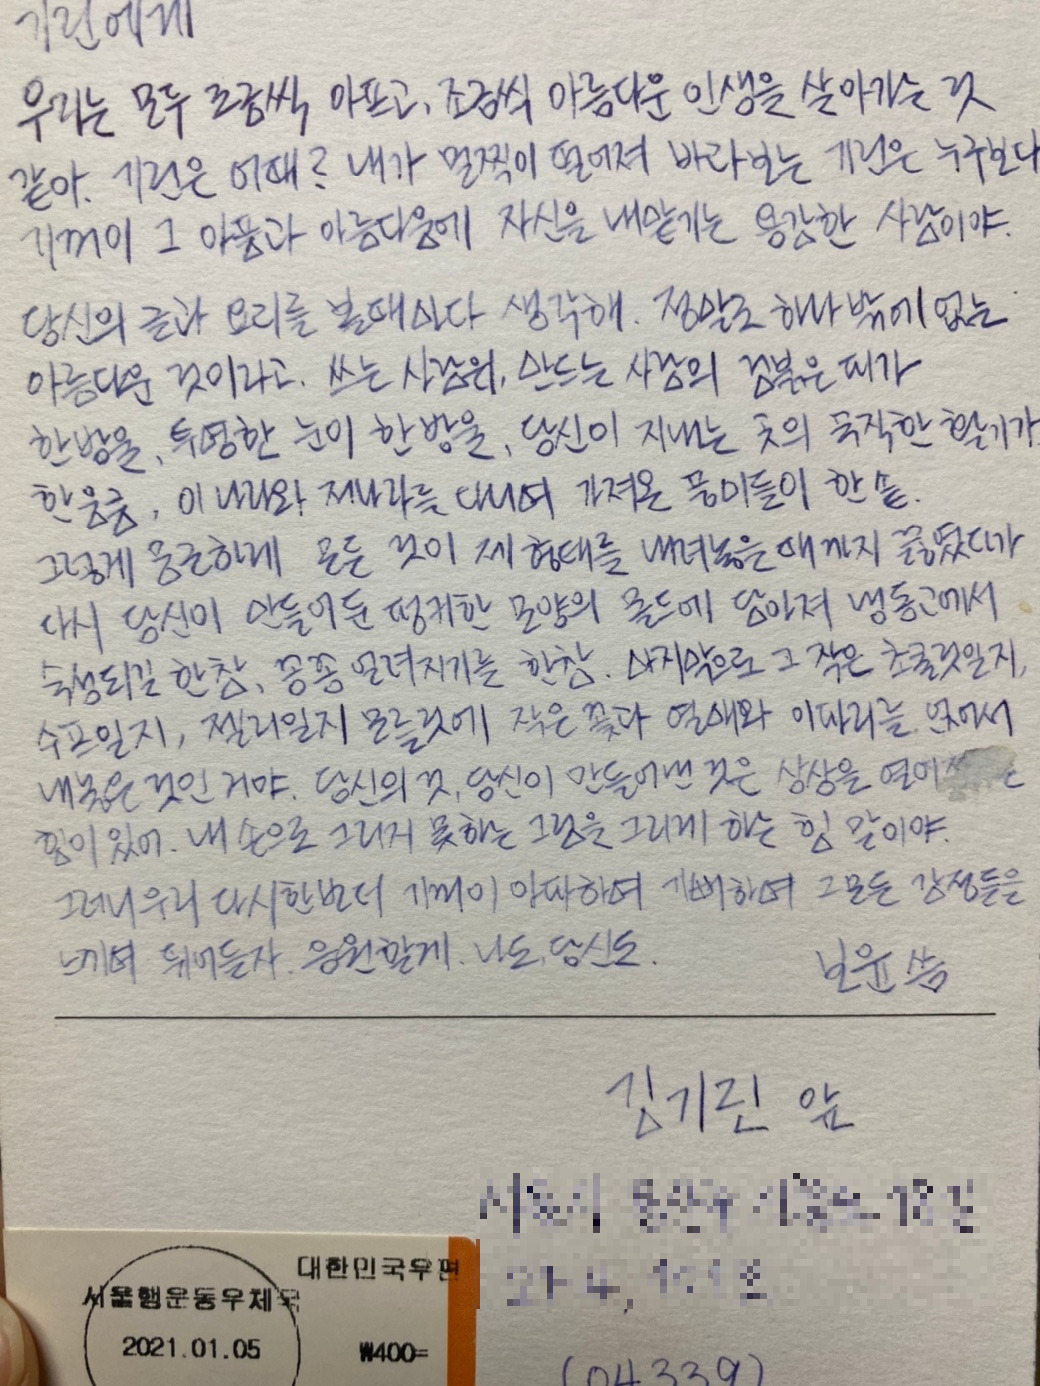 기린에게
우리는 모두 조금씩 아프고, 조금씩 아름다운 인생을 살아가는 것
같아. 기린은 어때? 내가 멀찍이 떨어져 바라보는 기린은 누구보다
기꺼이 그 아픔과 아름다움에 자신을 내맡기는 용감한 사람이야.
당신의 글과 요리를 볼때마다 생각해. 정말로 하나 밖에 없는
아름다운 것이라고. 쓰는 사람의, 만드는 사람의 검붉은 피가
한방울, 투명한 눈이 한방울, 당신이 지내는 곳의 묵직한 활기가
한움큼, 이 나라와 저나라를 다니며 가져온 풍미들이 한 솥.
그렇게 뭉근하게 모든 것이 제 형태를 내려놓을때까지 끓였다가
다시 당신이 만들어둔 떵커한 모양의 몰드에 담아져 냉동고에서
숙성되길 한참, 꽁꽁 얼려지기를 한참. 마지막으로 그 작은 초콜릿일지,
수프일지, 젤리일지 모를것에 작은 꽃과 열매와 이파리를 얹어서
내놓은 것인 거야. 당신의 것, 당신이 만들어낸 것은 상상을 열어
힘이 있어. 내 손으로 그리지 못하는 그림을 그리게 하는 힘 말이야.
그러니 우리 다시한번더 기꺼이 아파하며 기뻐하며 그 모든 감정들을
느끼며 뛰어들자. 응원할게. 나도, 당신도.
보윤 씀
김기린 앞
(04339)
대한민국우편
서울행운동우체국
2021.01.05
₩400=